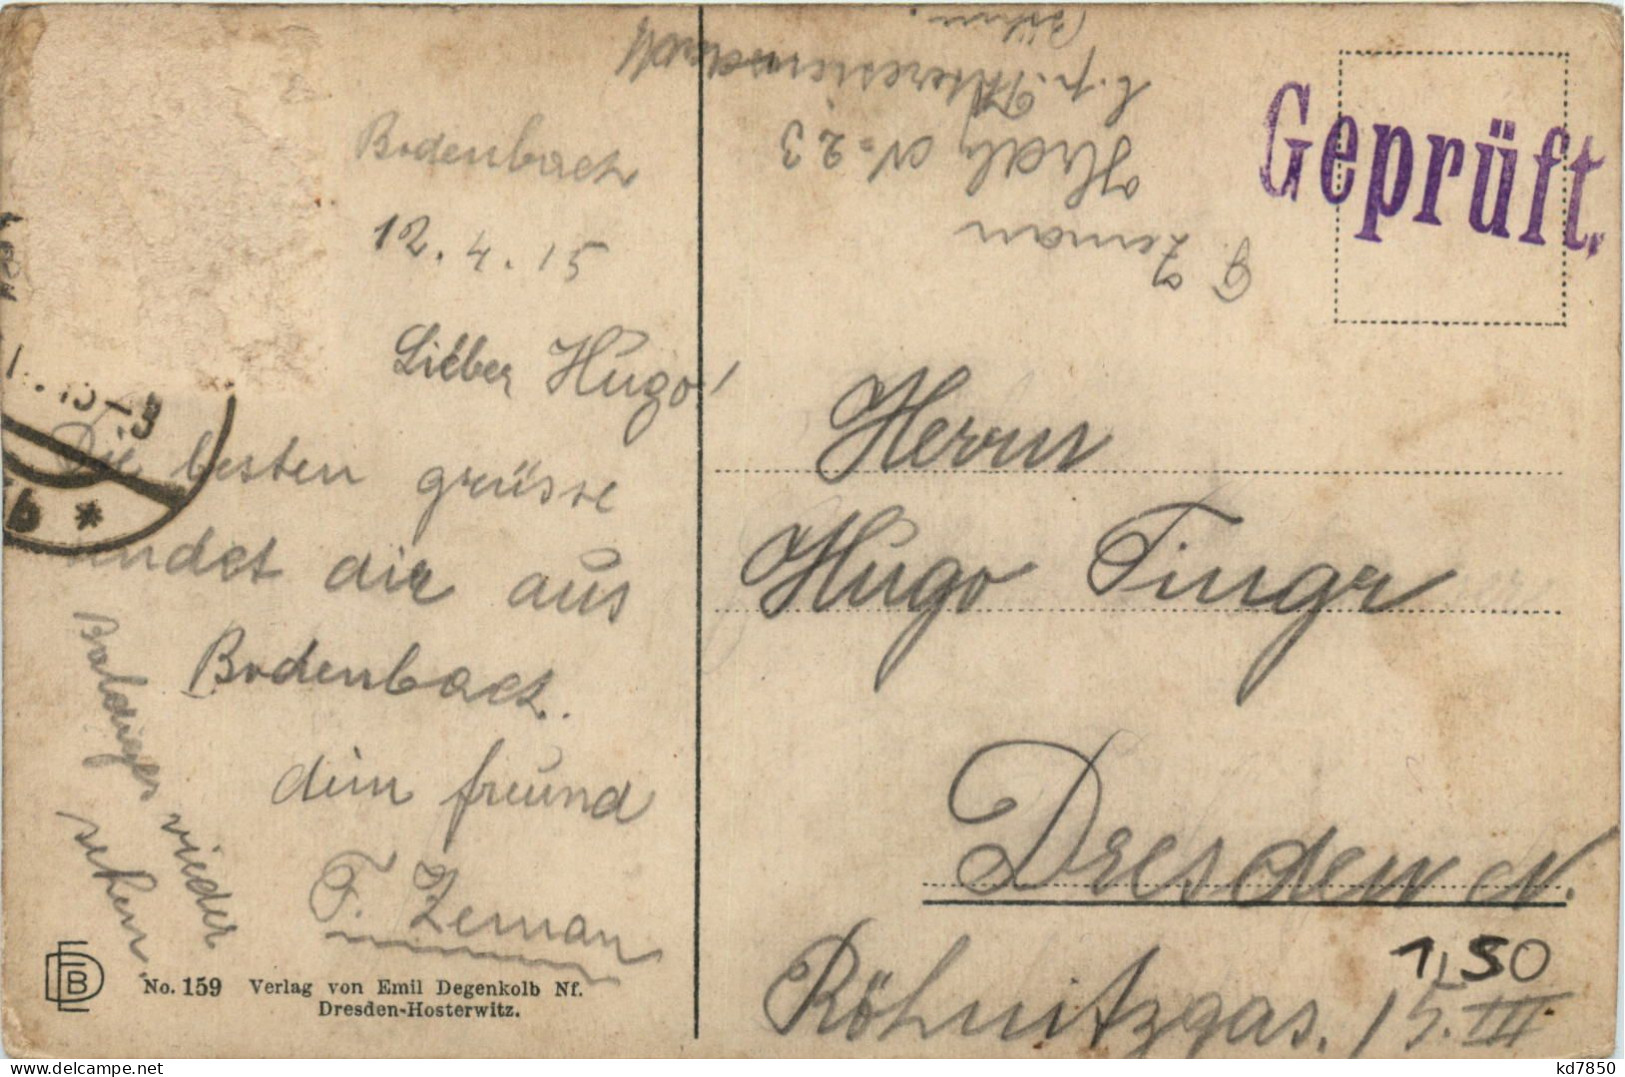 Bodenbach
12.4.15
Lieber Hugo!
Die besten grüsse
sendet dir aus
Bodenbach.
dein freund
F. Zeman
Baldiges wieder
sehen.
No. 159 Verlag von Emil Degenkolb Nf.
Dresden-Hosterwitz.
EDB
Geprüft.
F. Zeman
No. 23
b. p. Theresienstadt
Böhm.
Herrn
Hugo Fingr
Dresden N.
Röhnitzgas. 15. III.
1,50
kd7850